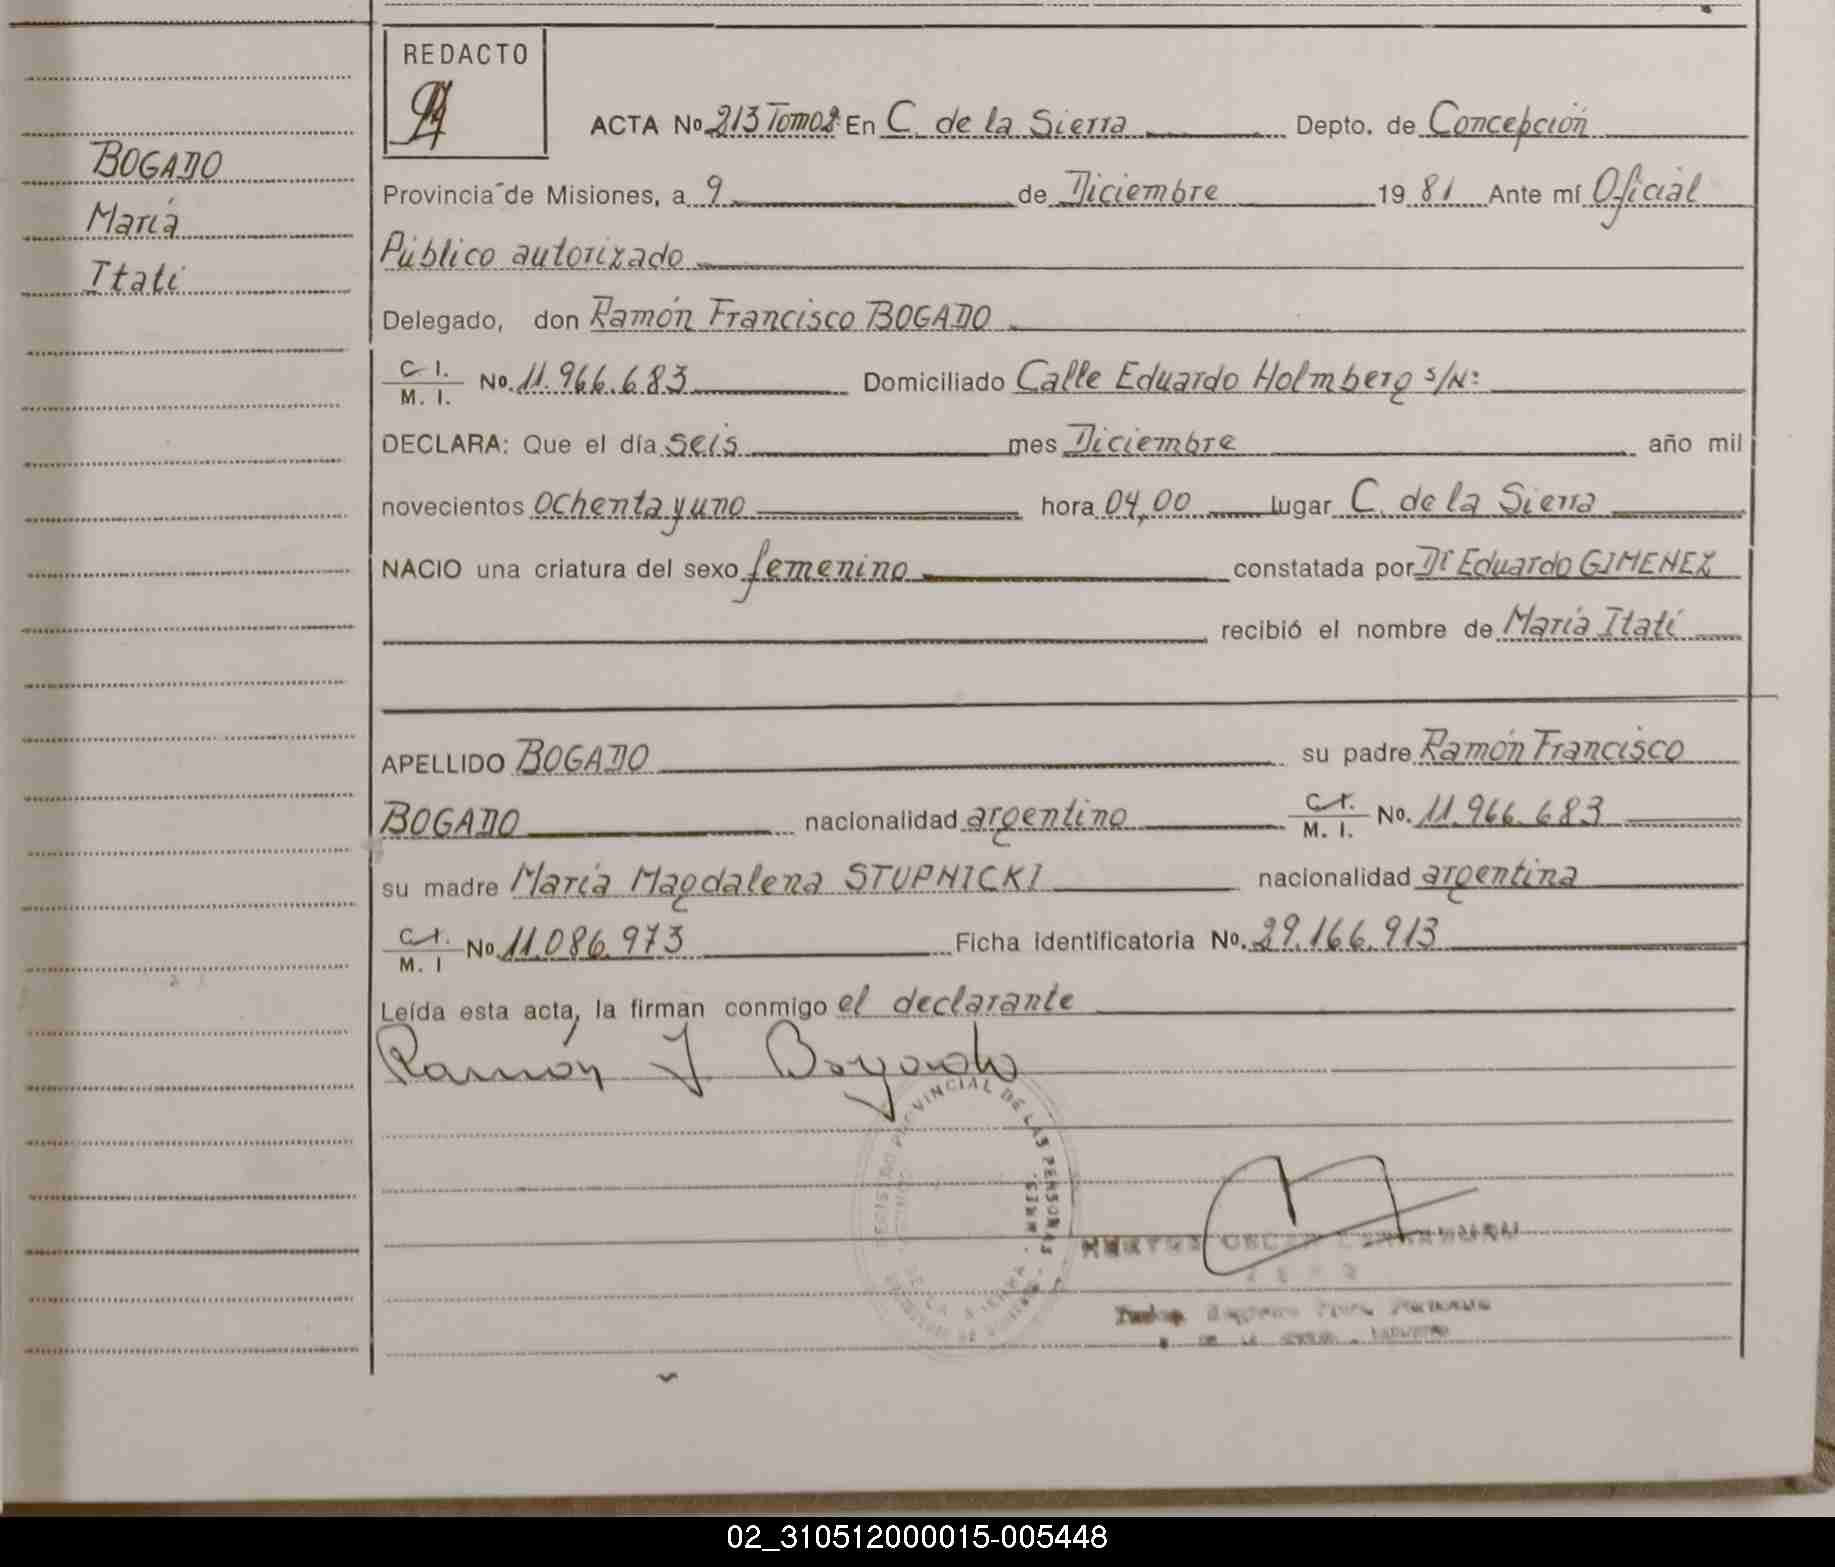 REDACTO
BOGADO
María
Itatí
ACTA No. 213 Tomo 2 En C. de la Sierra Depto. de Concepción
Provincia de Misiones, a 9 de Diciembre 19 81 Ante mí Oficial
Público autorizado
Delegado, don Ramón Francisco BOGADO
C. I.
M. I. No. 11.966.683 Domiciliado Calle Eduardo Holmberg s/Nº
DECLARA: Que el día seis mes Diciembre año mil
novecientos ochenta y uno hora 04,00 lugar C. de la Sierra
NACIO una criatura del sexo femenino constatada por Dr Eduardo GIMENEZ
recibió el nombre de María Itatí
APELLIDO BOGADO su padre Ramón Francisco
BOGADO nacionalidad argentino C. I.
M. I. No. 11.966.683
su madre María Magdalena STUPNICKI nacionalidad argentina
C. I.
M. I No. 11.086.973 Ficha identificatoria No. 29.166.913
Leída esta acta, la firman conmigo el declarante
Ramón F Bogado
REGISTRO PROVINCIAL DE LAS PERSONAS
02_310512000015-005448